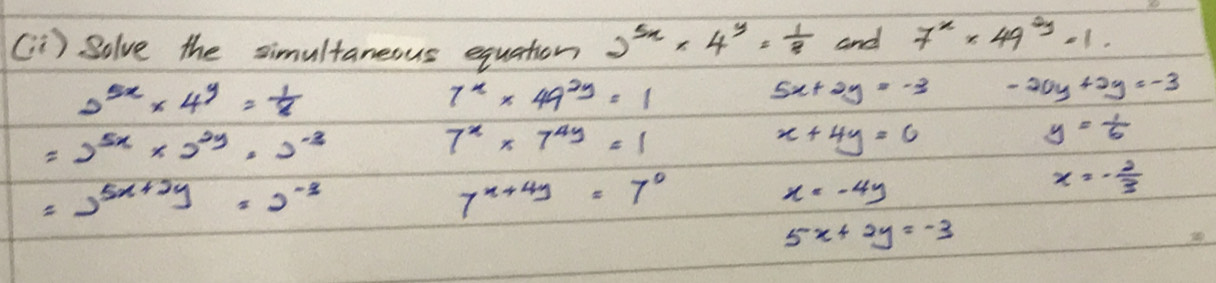 (ii) Solve the simultaneous equation 2^5x × 4^y = 1/8 and 7^x × 49^2y = 1.
2^5x × 4^y = 1/8
= 2^5x × 2^2y = 2^-3
= 2^5x+2y = 2^-3
7^x × 49^2y = 1
7^x × 7^4y = 1
7^x+4y = 7^0
5x + 2y = -3
x + 4y = 0
x = -4y
5x + 2y = -3
-20y + 2y = -3
y = 1/6
x = -2/3